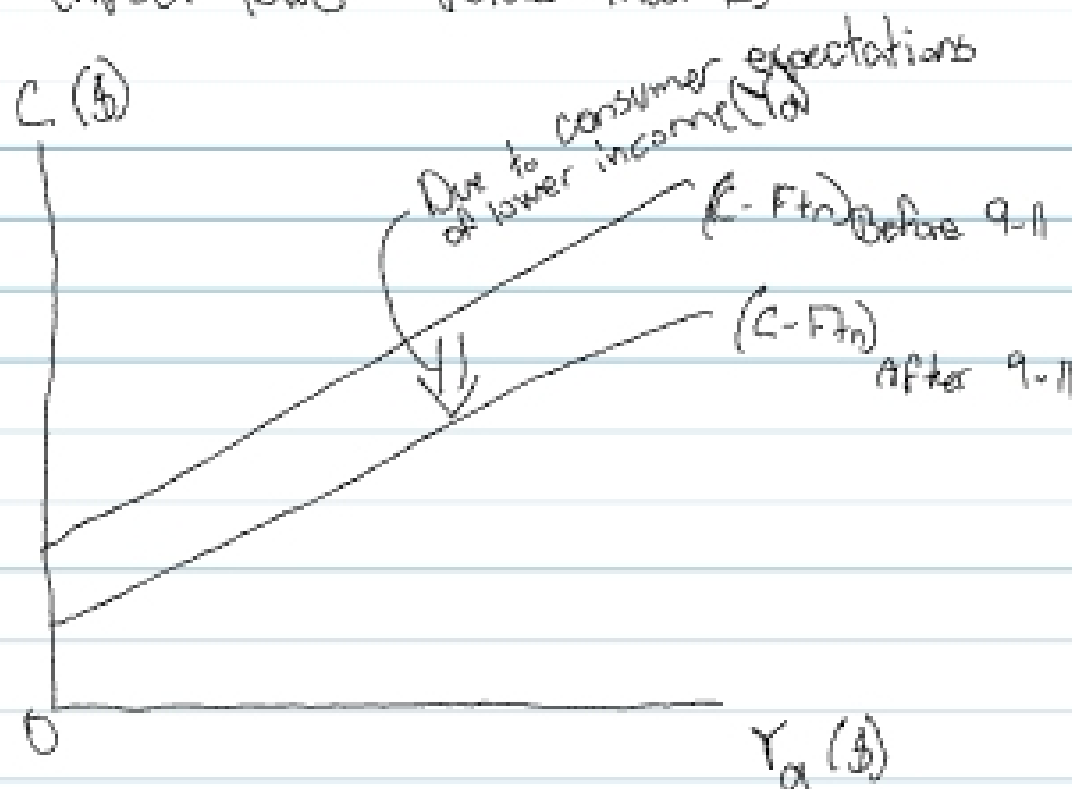 C ($)
Due to consumer expectations
of lower income (Yd)
(C-Ftn) Before 9-11
(C-Ftn)
After 9-11
0
Yd ($)